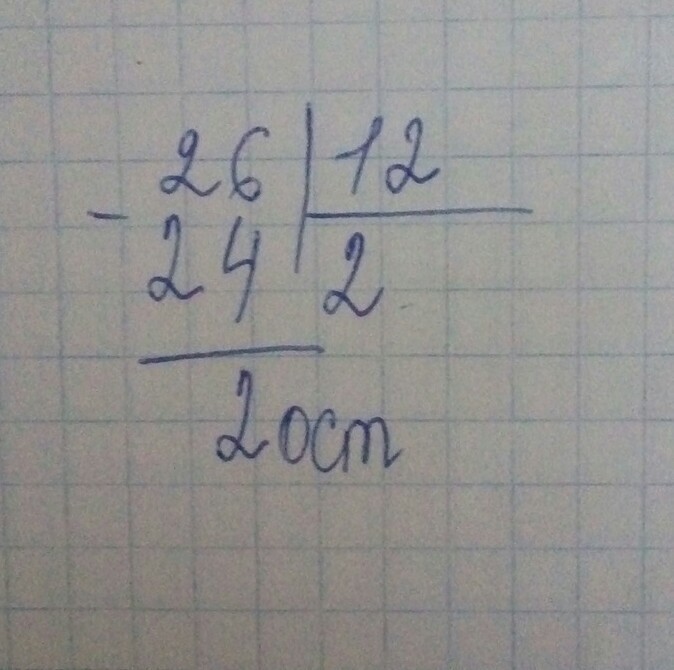 26 | 12
- 24 | 2
2 ост